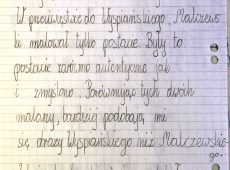 W przeciwieństwie do Wyspiańskiego, Malczews
ki malował tylko postacie. Były to
postacie zarówno autentyczne jak
i zmyślone. Porównując tych dwóch
malarzy, bardziej podobają mi
się obrazy Wyspańskiego niż Malczewskie-
go.